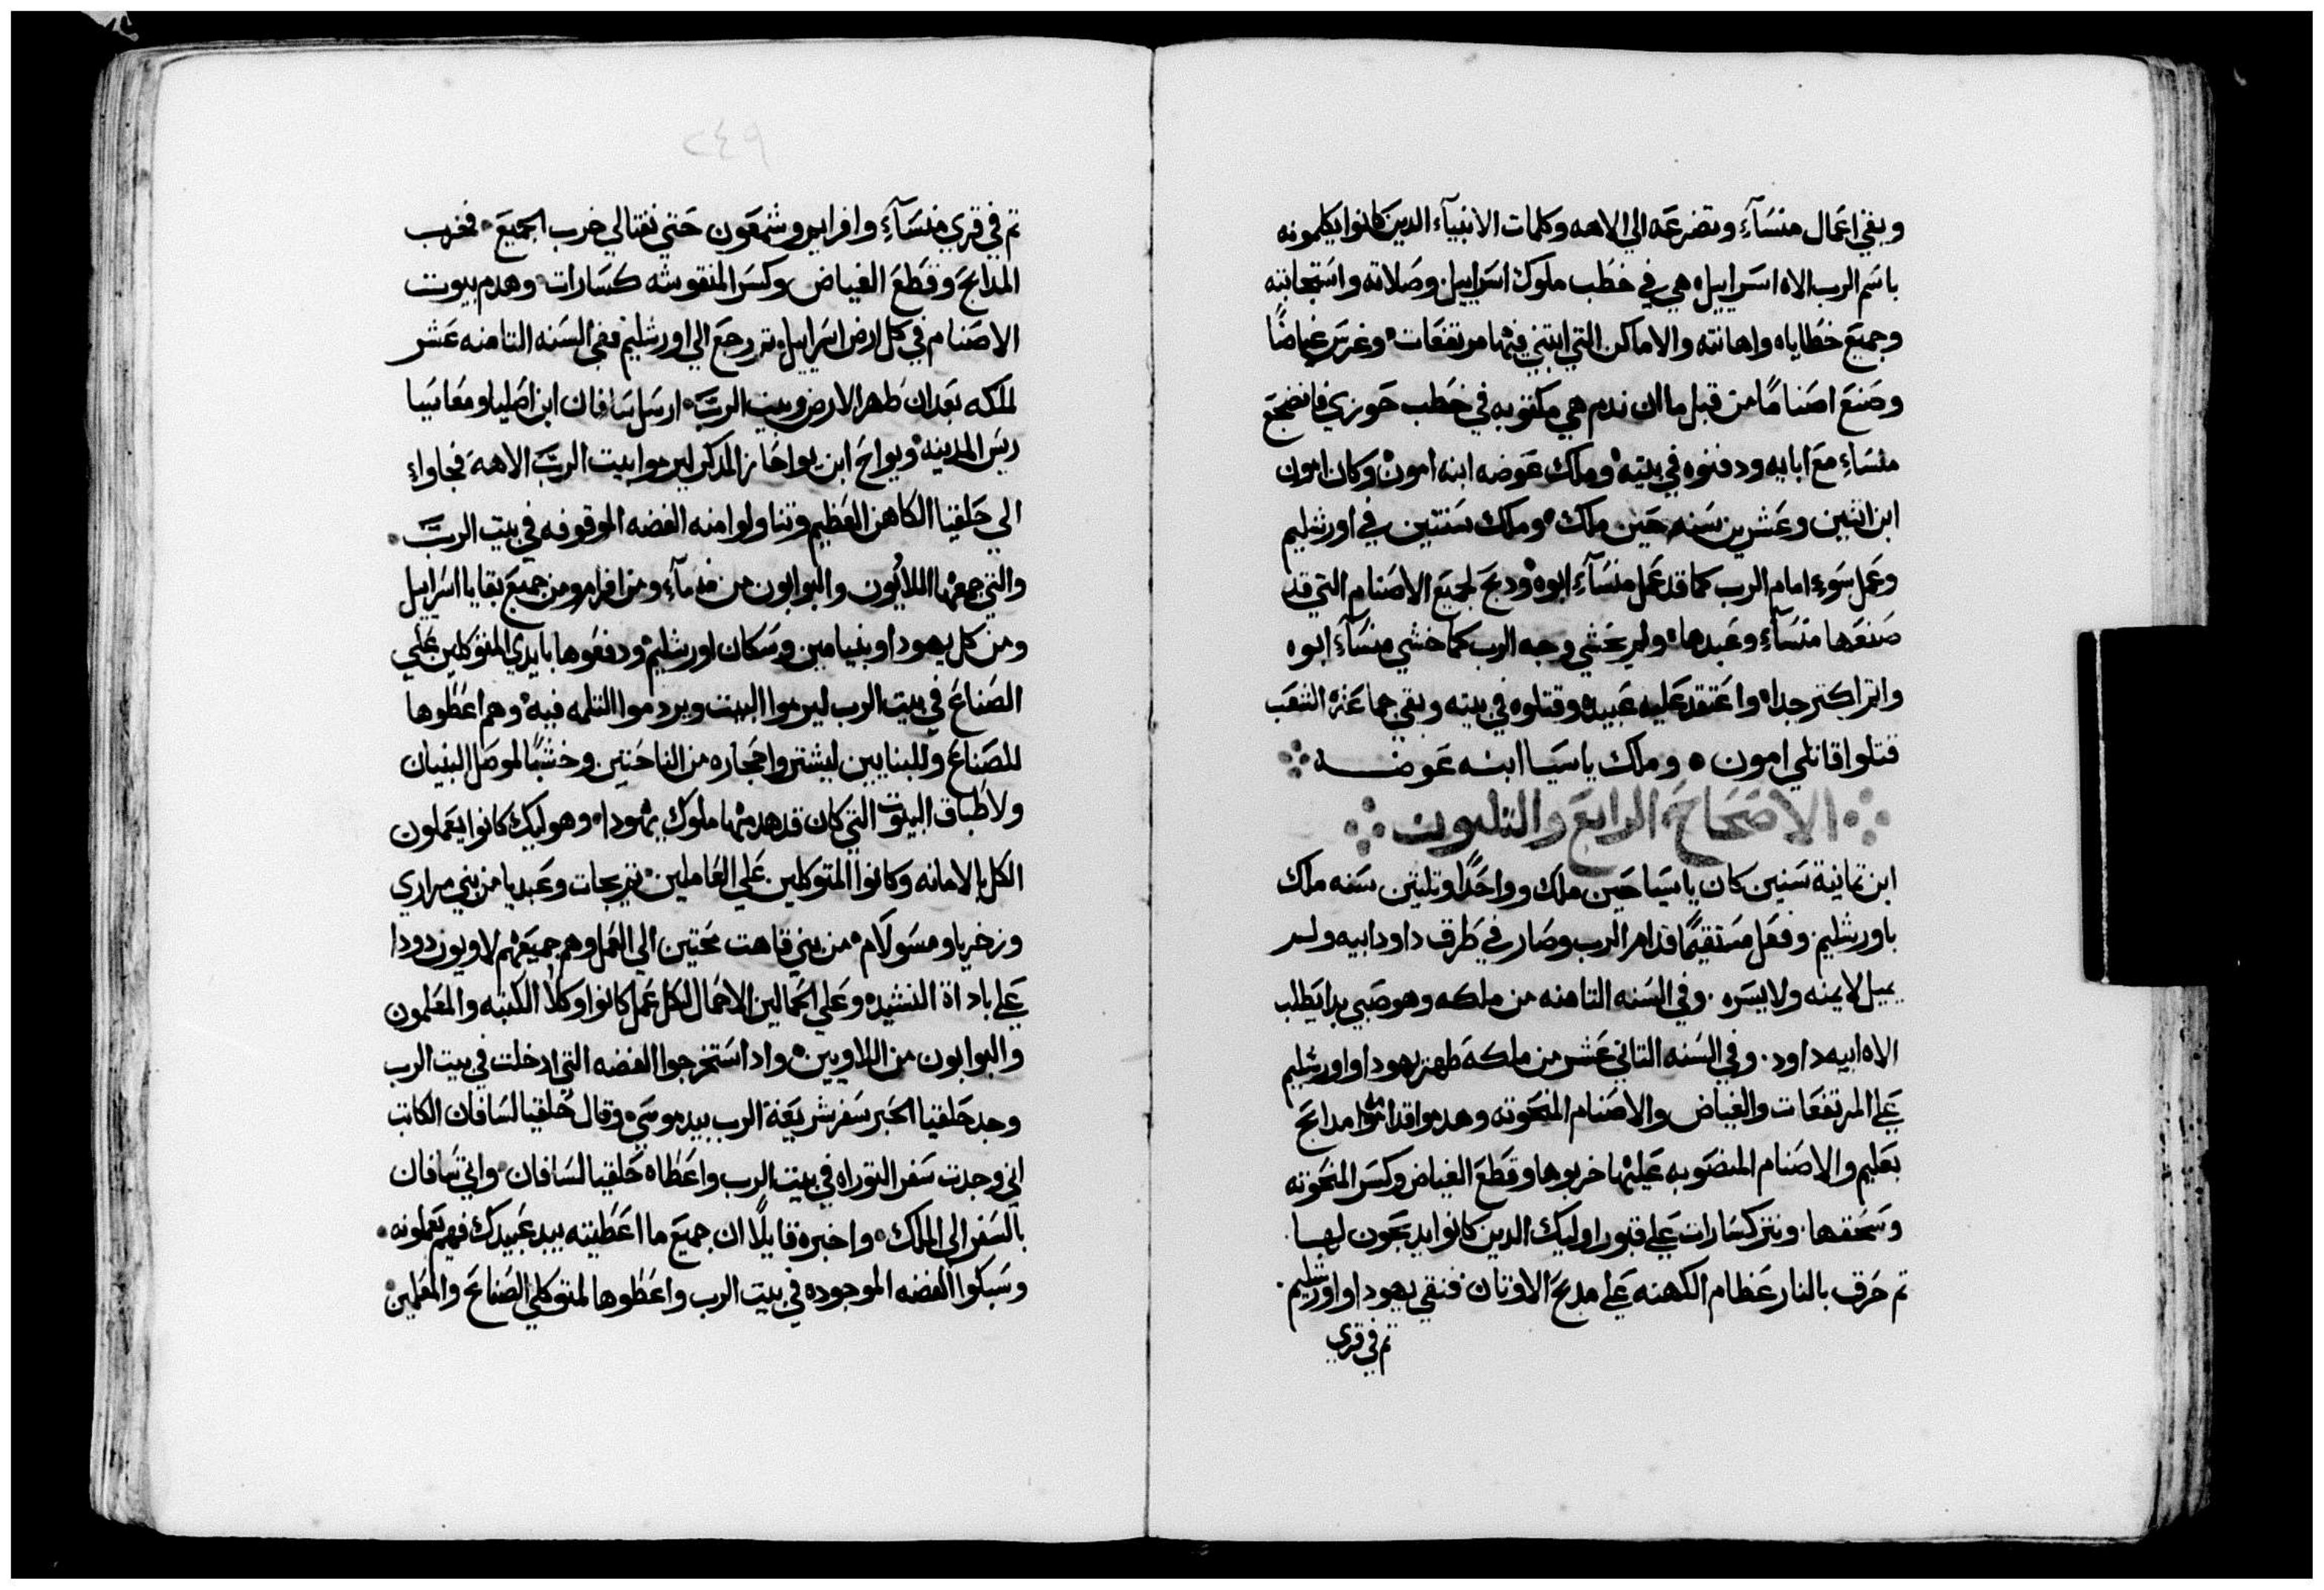 وبقي اعمال منسآء وتضرعه الي الاهه وكلمات الانبيآء الدين كانوا يكلمونه
باسم الرب الاه اسراييل هي في خطب ملوك اسراييل وصلاته واستجابته
وجميع خطاياه واهانته والاماكن التي ابتني فيها مرتفعات وغرس غياضًا
وصنع اصنامًا من قبل ما ان ندم هي مكتوبه في خطب حوزي فانضجع
منساء مع ابايه ودفنوه في بيته وملك عوضه ابنه امون وكان امون
ابن اتنين وعشرين سنه حين ملك وملك سنتين في اورشليم
وعمل سوء امام الرب كما قد عمل منسآء ابوه ودبح لجميع الاصنام التي قد
صنعها منسآء وعبدها ولم يخشي وجه الرب كما خشي منسآء ابوه
واتم اكتر جدا واعتقد عليه عبيده وقتلوه في بيته وبقي جماعة الشعب
قتلوا قاتلي امون وملك ياسيا ابنه عوضه
الاصحاح الرابع والتلتون
ابن تمانية سنين كان ياسيا حين ملك وواحدًا وتلتين سنه ملك
باورشليم وفعل مستقيمًا قدام الرب وصار في طرق داود ابيه ولم
يميل لا يمنه ولا يسره وفي السنه التامنه من ملكه وهو صبي بدا يطلب
الاه ابيه داود وفي السنه التاني عشر من ملكه طهر يهودا واورشليم
علي المرتفعات والغياض والاصنام المنحوته وهدموا قدامه مدابح
بعليم والاصنام المنصوبه عليها خربوها وقطع الغياض وكسر المنحوته
وسحقها ونتر كسارات علي قبور اوليك الدين كانوا يدبحون لها
تم حرق بالنار عظام الكهنه علي مدبح الاوتان فنقي يهودا واورشليم
تم في قري
٢٤٩
تم في قري منسآء وافرايم وشمعون حتي نفتالي خرب الجميع فخرب
المدابح وقطع الغياض وكسر المنقوشه كسارات وهدم بيوت
الاصنام في كل ارض اسراييل تم رجع الي اورشليم ففي السنه التامنه عشر
لملكه بعد ان طهر الارض وبيت الرب ارسل سافان ابن اصليا ومعاسيا
ريس المدينه ويواح ابن يواحاز المدكر ليرموا بيت الرب الاهه فجاواء
الي حلقيا الكاهن العظيم وتناولوا منه الفضه الموقوفه في بيت الرب
والتي جمعها اللايون والبوابون من منسآء ومن افرام ومن جميع بقايا اسراييل
ومن كل يهودا وبنيامين وسكان اورشليم ودفعوها بايدي المتوكلين علي
الصناع في بيت الرب ليرموا البيت ويردموا التلمه فيه وهم اعطوها
للصناع وللبنايين ليشتروا حجاره من الناحتين وخشبًا لموصل البنيان
ولاطباق البيوت التي كان قد هدمها ملوك يهودا وهوليك كانوا يعملون
الكل بالامانه وكانوا المتوكلين علي العاملين يحات وعبديا من بني مراري
وزخريا ومسولام من بني قاهت محتين الي العمل وهم جميعهم لاويون دودا
علي باداة النشيده وعلي الحمالين الاحمال لكل عمل كانوا وكلا الكتبه والمعلمون
والبوابون من اللاويين وادا استخرجوا الفضه التي ادخلت في بيت الرب
وجد حلقيا الحبر سفر شريعة الرب بيد موسي وقال حلقيا لسافان الكاتب
اني وجدت سفر التوراه في بيت الرب واعطاه حلقيا لسافان واتي سافان
بالسفر الي الملك واخبره قايلًا ان جميع ما اعطيته بيد عبيدك فهم يعملونه
وسبكوا الفضه الموجوده في بيت الرب واعطوها لمتوكلي الصناع والمعلمين